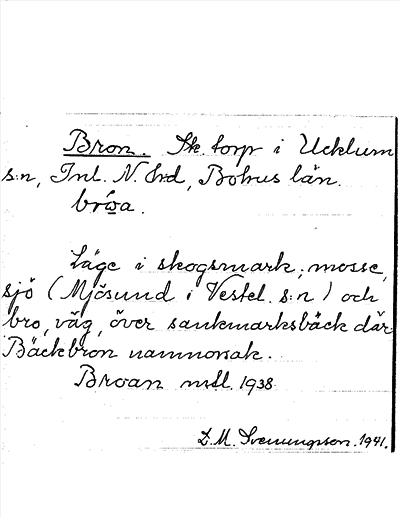 Bron. Sk. torp i Ucklum
s:n, Inl. N. hd, Bohus län.
Läge i skogsmark, mosse,
sjö (Mjösund i Vestel. s:n) och
bro, väg, över sankmarksbäck där
Bäckbron namnorsak.
Broan mtl. 1938
D.M. Svenungsson. 1941.